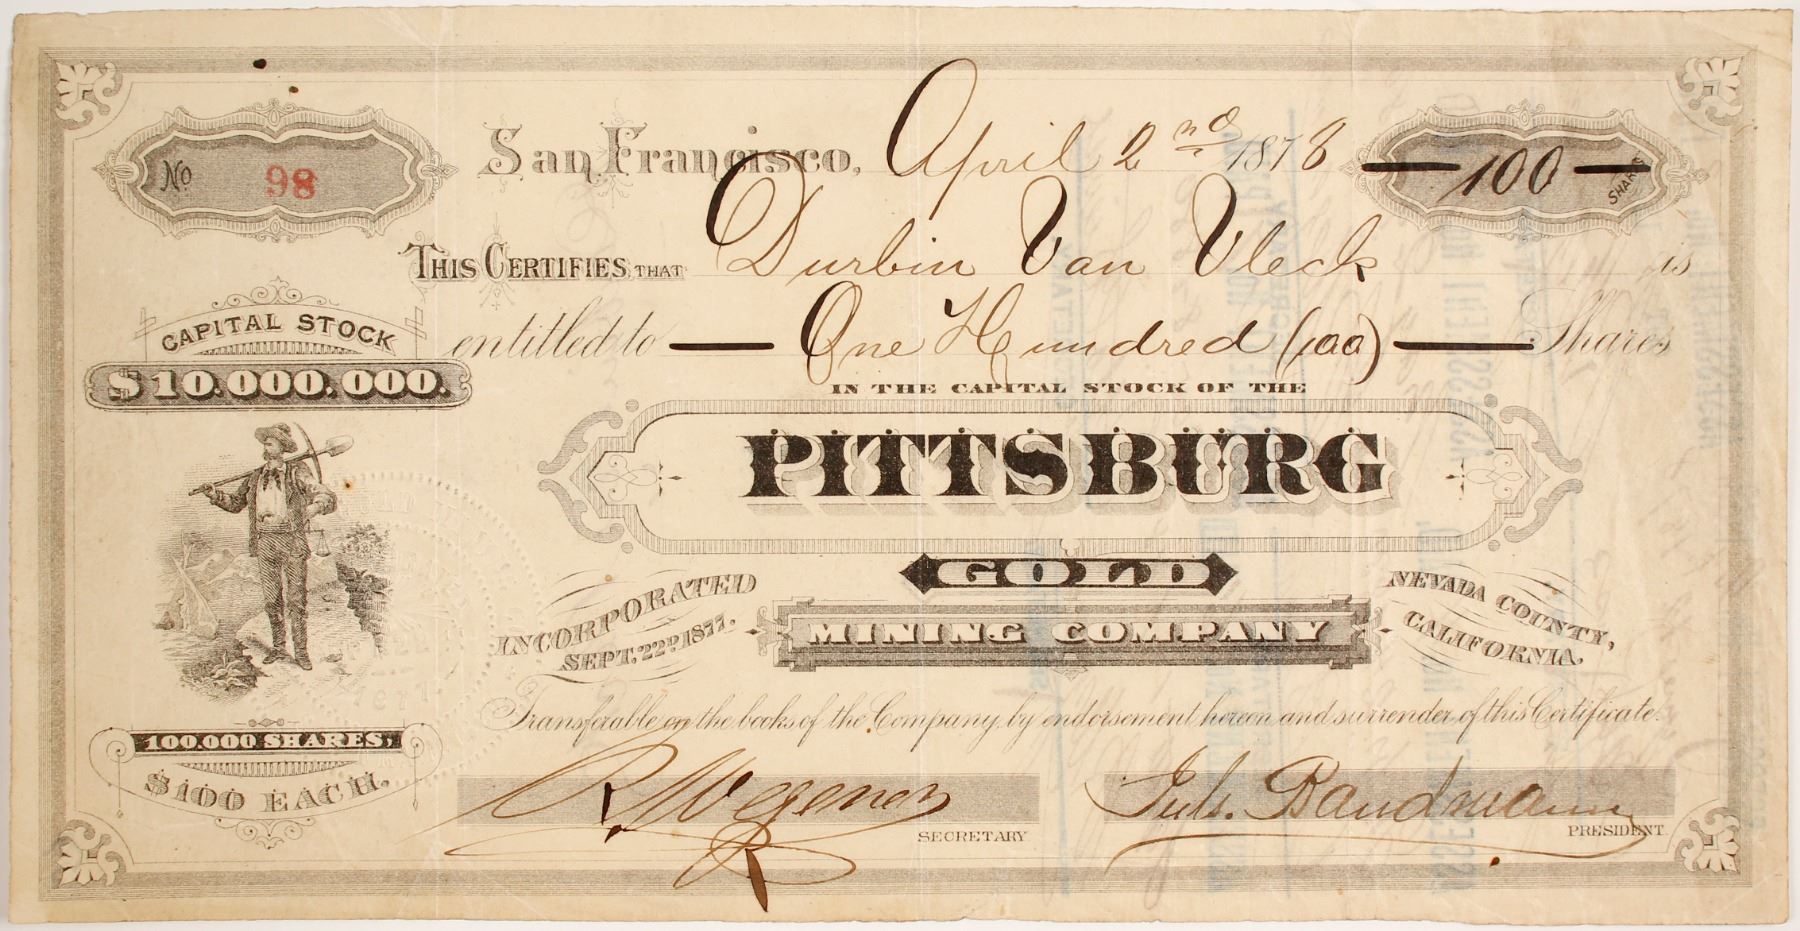 No 98
San Francisco, April 2nd 1878
— 100 — SHARES
THIS CERTIFIES THAT Durbin Van Vleck is
entitled to — One Hundred (100) — Shares
IN THE CAPITAL STOCK OF THE
PITTSBURG
GOLD
MINING COMPANY
INCORPORATED
SEPT. 22D. 1877.
NEVADA COUNTY,
CALIFORNIA.
CAPITAL STOCK
$10.000.000.
100.000 SHARES,
$100 EACH.
Transferable on the books of the Company, by endorsement hereon and surrender of this Certificate.
R. Wegener
SECRETARY
Jul. Bandmann
PRESIDENT